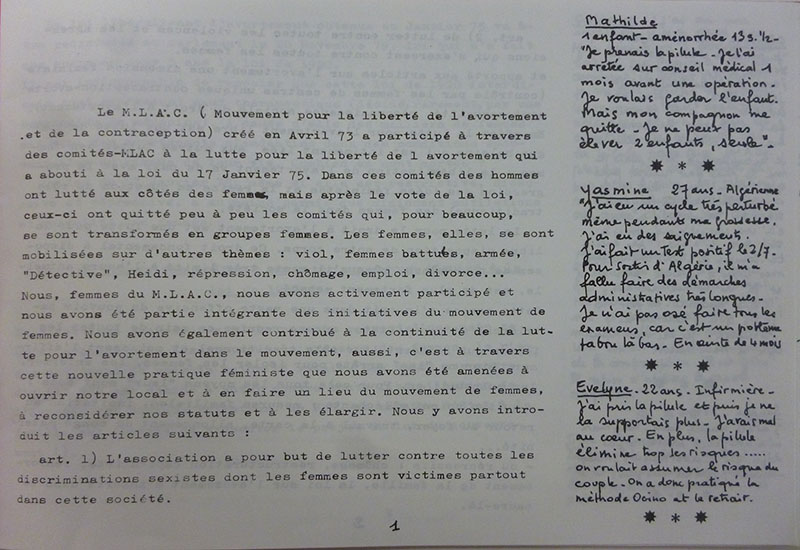 Le M.L.A.C. ( Mouvement pour la liberté de l'avortement
.et de la contraception) créé en Avril 73 a participé à travers
des comités-MLAC à la lutte pour la liberté de l avortement qui
a abouti à la loi du 17 Janvier 75. Dans ces comités des hommes
ont lutté aux côtés des femmes, mais après le vote de la loi,
ceux-ci ont quitté peu à peu les comités qui, pour beaucoup,
se sont transformés en groupes femmes. Les femmes, elles, se sont
mobilisées sur d'autres thèmes : viol, femmes battues, armée,
"Détective", Heidi, répression, chômage, emploi, divorce...
Nous, femmes du M.L.A.C., nous avons activement participé et
nous avons été partie intégrante des initiatives du mouvement de
femmes. Nous avons également contribué à la continuité de la lut-
te pour l'avortement dans le mouvement, aussi, c'est à travers
cette nouvelle pratique féministe que nous avons été amenées à
ouvrir notre local et à en faire un lieu du mouvement de femmes,
à reconsidérer nos statuts et à les élargir. Nous y avons intro-
duit les articles suivants :
art. 1) L'association a pour but de lutter contre toutes les
discriminations sexistes dont les femmes sont victimes partout
dans cette société.
1
Mathilde
1 enfant - aménorrhée 13 s. 1/2 -
"Je prenais la pilule - Je l'ai
arrêtée sur conseil médical 1
mois avant une opération.
Je voulais garder l'enfant.
Mais mon compagnon me
quitte - Je ne peux pas
élever 2 enfants, seule".
Yasmine 27 ans - Algérienne
"J'ai eu un cycle très perturbé
même pendant ma grossesse.
J'ai eu des saignements.
J'ai fait un test positif le 2/7.
Pour sortir d'Algérie, il m'a
fallu faire des démarches
administratives très longues.
Je n'ai pas osé faire tous les
examens, car c'est un problème
tabou là bas. Enceinte de 4 mois
Evelyne - 22 ans - Infirmière -
J'ai pris la pilule et puis je ne
la supportais plus - J'avais mal
au cœur. En plus, la pilule
élimine trop les risques .....
on voulait assumer le risque du
couple. On a donc pratiqué la
méthode Ogino et le retrait.